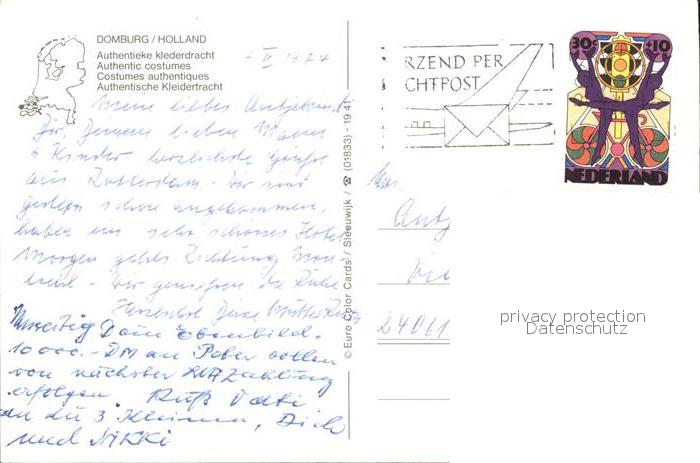 DOMBURG / HOLLAND
Authentieke klederdracht
Authentic costumes
Costumes authentiques
Authentische Kleidertracht
1974
Meine liebes
Dir, Deinem lieben Mann
+ Kinder herzlichste Grüße
aus Rotterdam. Wir sind
gestern schon angekommen,
haben ein sehr schönes Hotel
Morgen gehts Richtung
wir genießen die Ruhe
Herzlichst Deine
Dein Ebenbild.
10 000.- DM an Peter sollen
von nächster Zahlung
erfolgen. Gruß Vati
an die 3 Kleinen, Dich
und NIKKI
© Euro Color Cards / Sleeuwijk / ☎ (01833) - 19 41
RZEND PER
CHTPOST
30c +10
NEDERLAND
24061
privacy protection
Datenschutz